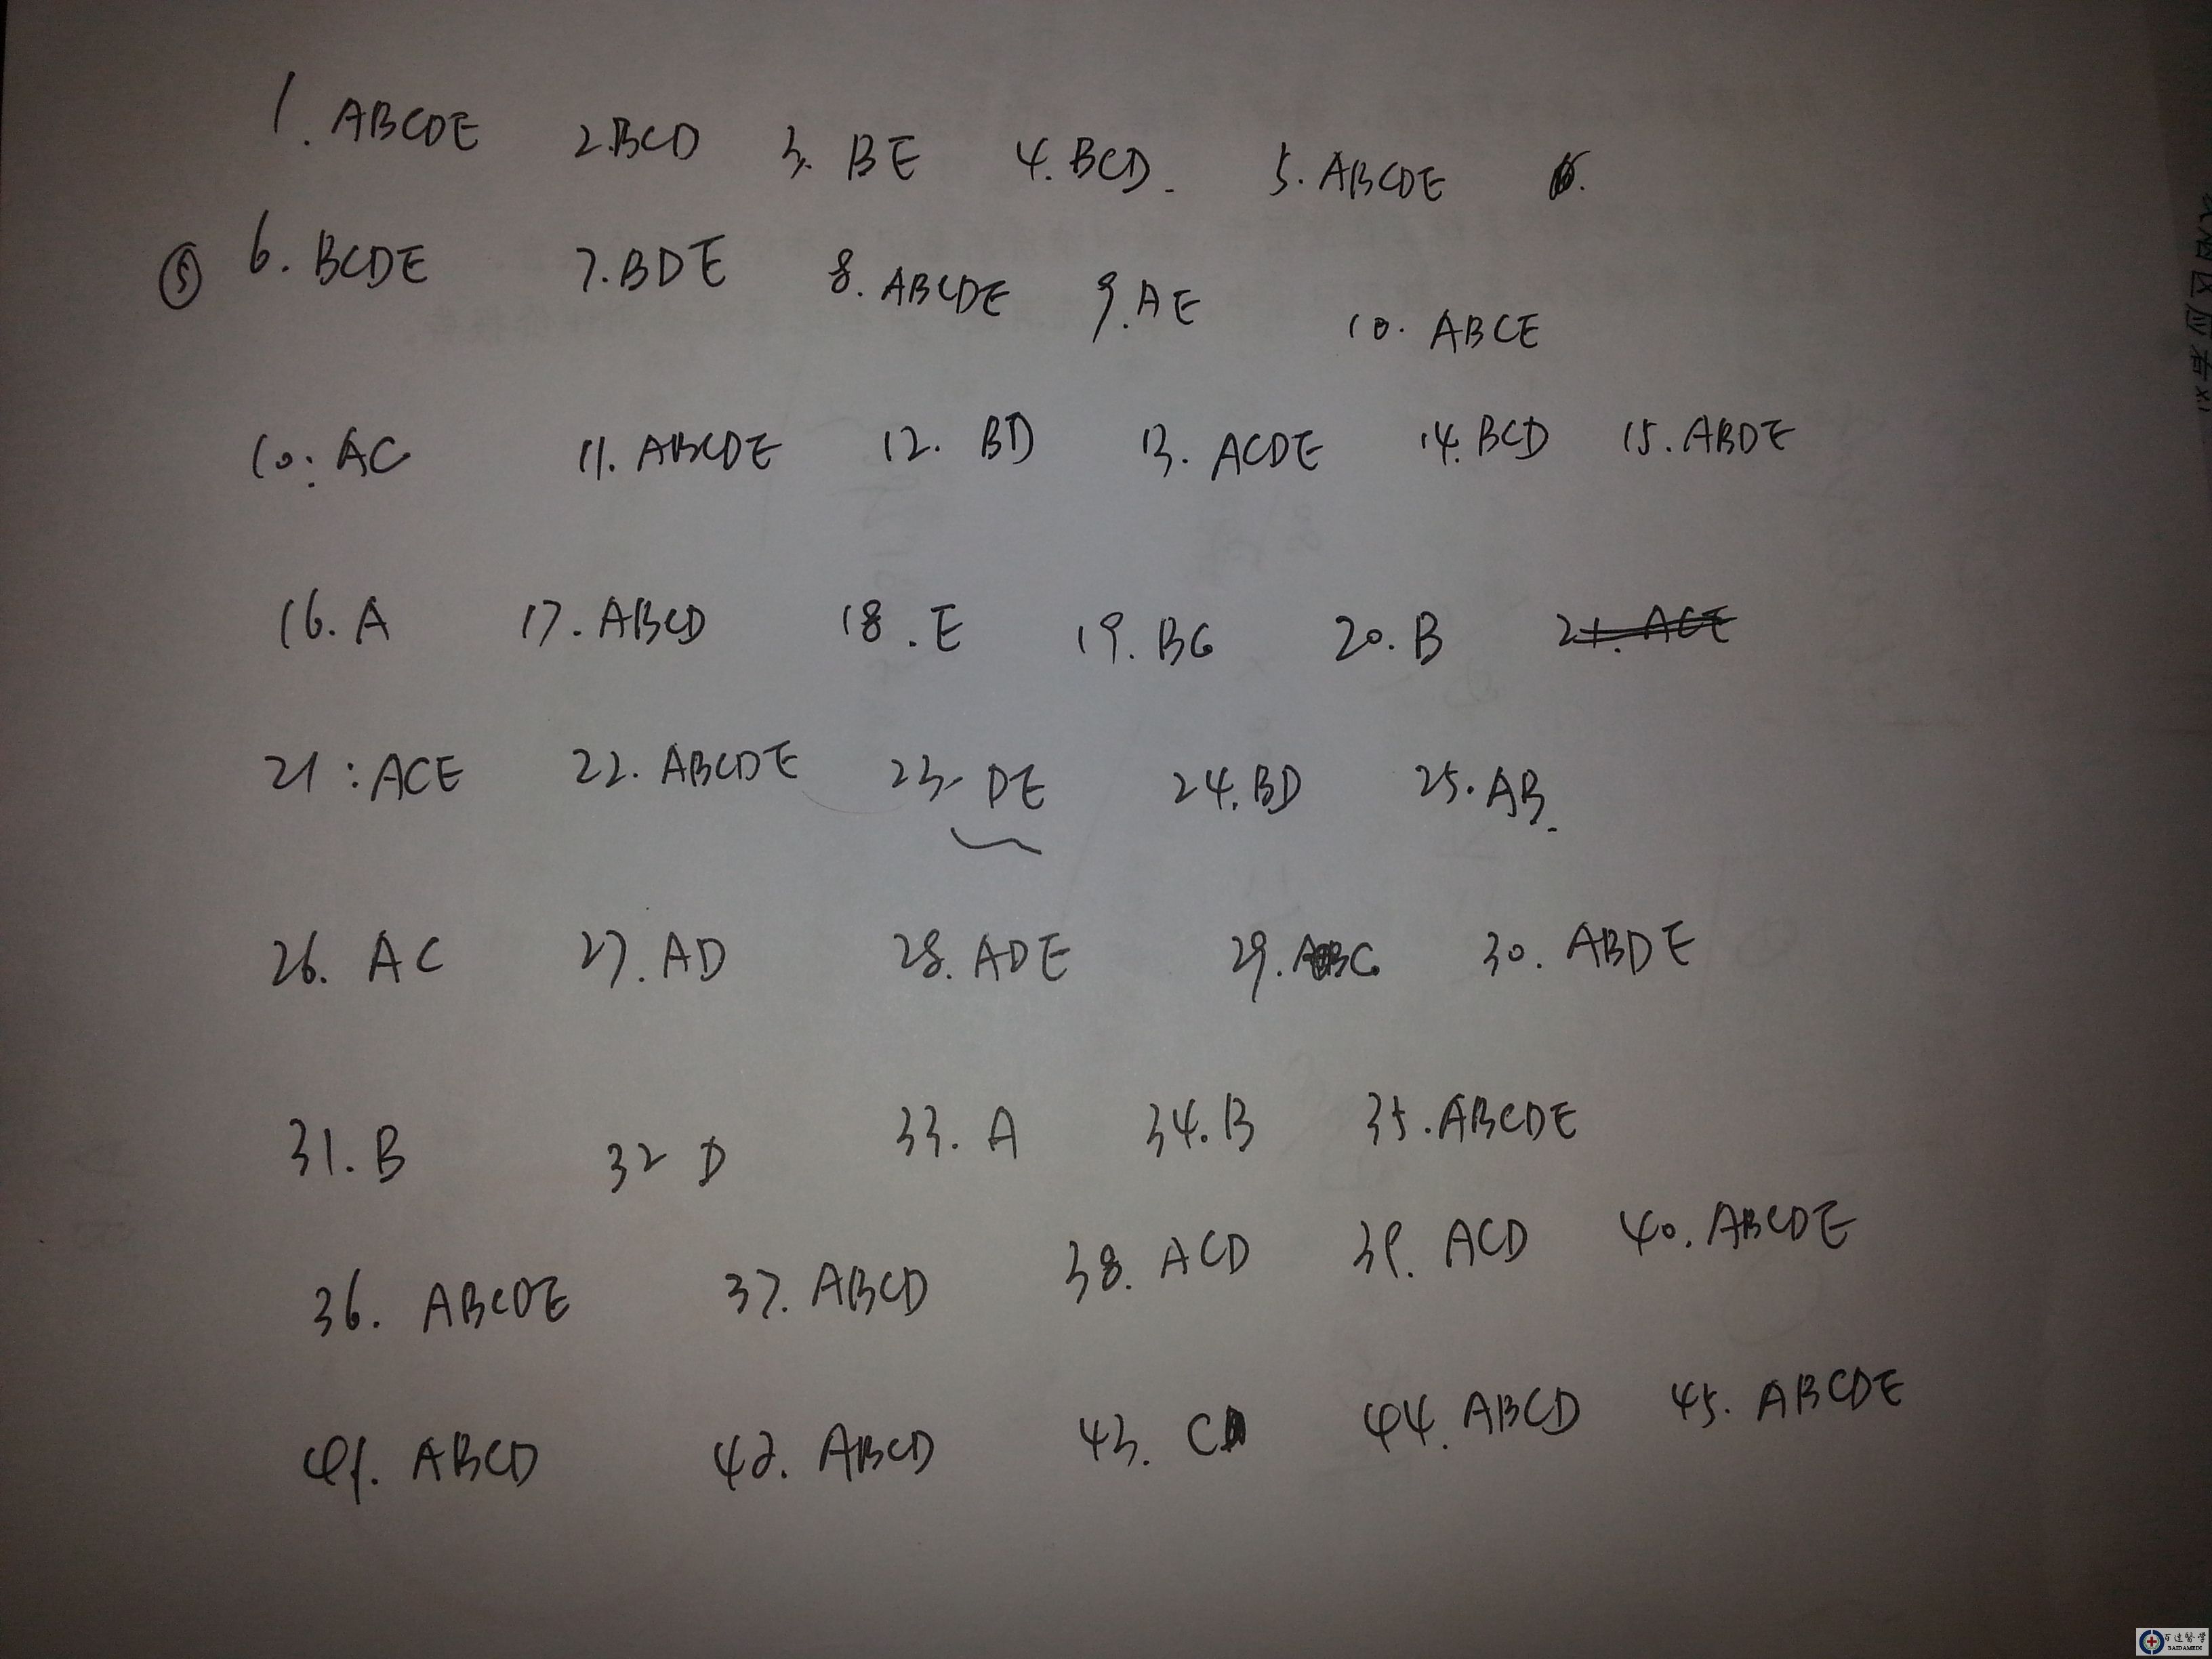 1. ABCDE 2. BCD 3. BE 4. BCD. 5. ABCDE
⑤ 6. BCDE 7. BDE 8. ABCDE 9. AE 10. ABCE
10: AC 11. ABCDE 12. BD 13. ACDE 14. BCD 15. ABDE
16. A 17. ABCD 18. E 19. BC 20. B 21. ACE
21: ACE 22. ABCDE 23. DE 24. BD 25. AB.
26. AC 27. AD 28. ADE 29. ABC 30. ABDE
31. B 32 D 33. A 34. B 35. ABCDE
36. ABCDE 37. ABCD 38. ACD 39. ACD 40. ABCDE
41. ABCD 42. ABCD 43. C 44. ABCD 45. ABCDE
百达醫学
BAIDAMEDI